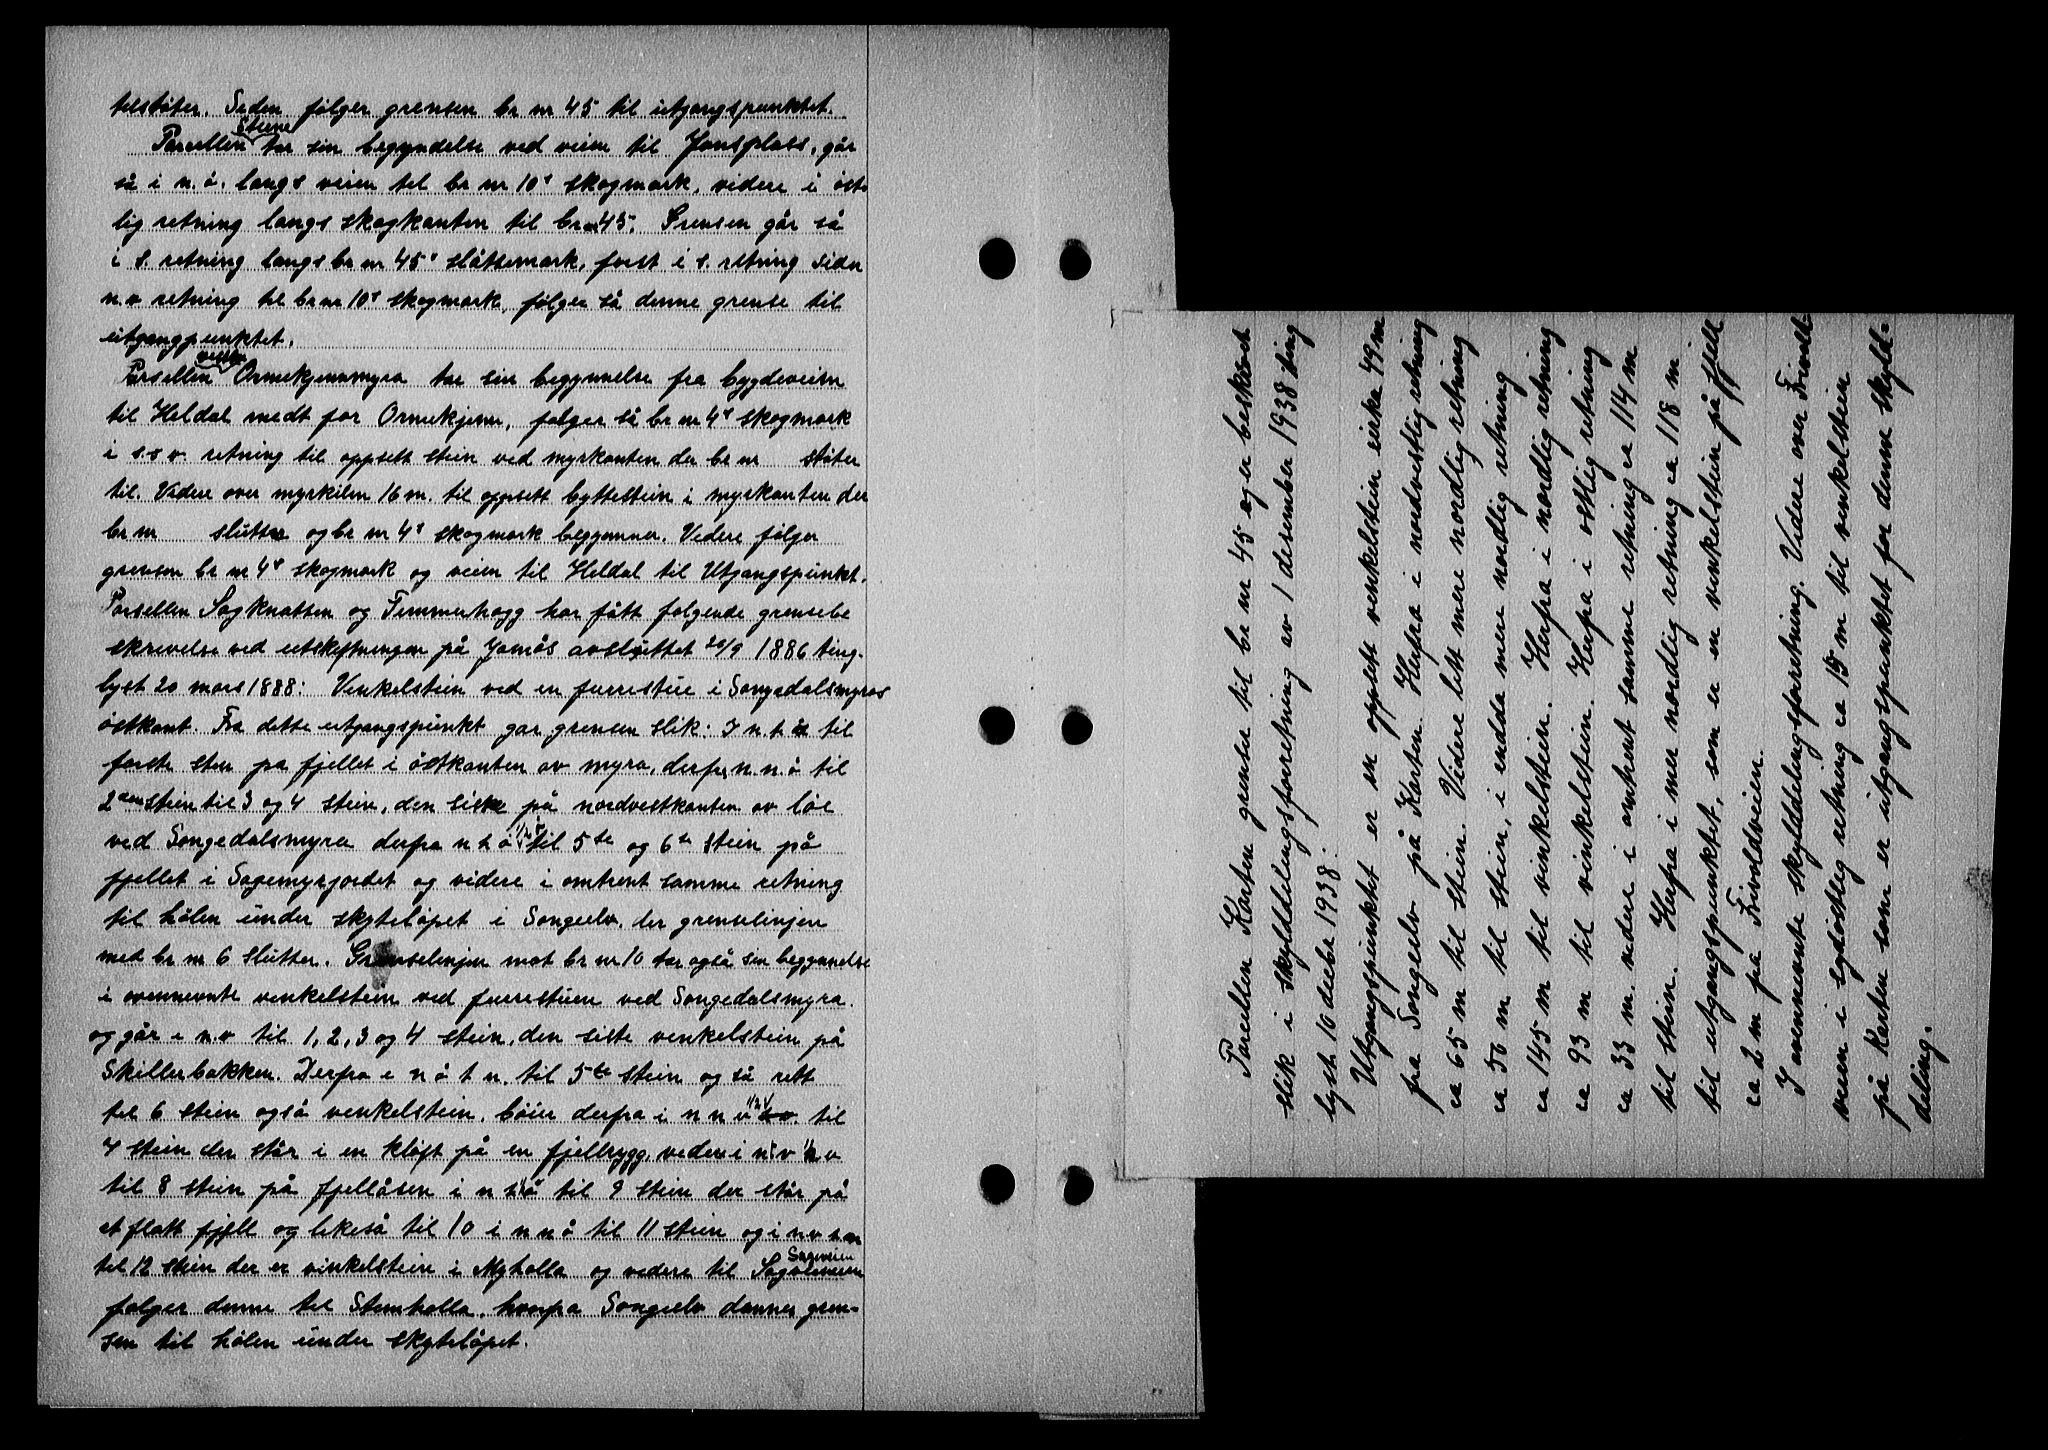 tilstøter. Siden følger grensen br nr 45 til utgangspunktet.
Parsellen Steine tar sin begyndelse ved veien til Jonsplass, går
så i n.ö. langs veien til br nr 10s skogmark, videre i öst-
lig retning langs skogkanten til br nr 45. Grensen går så
i s. retning langs br nr 45s slåttemark, först i s. retning siden
n.v retning til br nr 10s skogmark, følger så denne grense til
utgangpunktet.
Parsellen Ornekjennmyra tar sin begynnelse fra bygdeveien
til Heldal medt for Ornekjenn, følger så br nr 4s skogmark
i s.s v. retning til oppsett stein ved myrkanten der br nr støter
til. Videre over myrkilen 16 m. til oppsett byttestein i myrkanten der
br nr slutter og br nr 4s skogmark begynner. Videre følger
grensen br nr 4s skogmark og veien til Heldal til Utgangspunkt.
Parsellen Sagknatten og Timmerhogg har fått følgende grensebe
skrivelse ved utskiftningen på Jomås avsluttet 20/9 1886 ting-
lyst 20 mars 1888: Vinkelstein ved en furrestue i Songedalsmyras
östkant. Fra dette utgangspunkt går grensen slik: I n.t.ö til
første sten på fjellet i östkanten av myra, derfra n.n.ö til
2den stein til 3 og 4 stein, den siste på nordvestkanten av löe
ved Songedalsmyra derfra n t ö 1/2 ö til 5te og 6te stein på
fjellet i Sagemyrjordet og videre i omtrent samme retning
til hölen under skyteløpet i Songeelv, der grenselinjen
med br nr 6 slutter. Grenselinjen mot br nr 10 tar også sin begynnelse
i ovennevnte vinkelstein ved furrestuen ved Songedalsmyra.
og går i n.v til 1, 2, 3 og 4 stein, den siste vinkelstein på
Skillerbakken. Derfra i n ö t n. til 5te stein og så rett
til 6 stein også vinkelstein, böier derfra i n n v 1/2 v til
7 stein der står i en kløft på en fjellrygg, videre i n v 1/2 v
til 8 stein på fjellåsen i n t ö til 9 stein der står på
et flatt fjell og likeså til 10 i n n ö til 11 stein og i n v t n
til 12 stein der er vinkelstein i Myholla og videre til Sageveien
følger denne til Stemholla, hvorfra Songeelv danner gren-
sen til hölen under skyteløpet.
Parsellen Karten grenser til br nr 45 og er beskrevet
slik i skylddelingsforretning av 1 desember 1938 ting
lyst 10 decbr 1938:
Utgangspunktet er en oppsett vinkelstein cirka 49 m
fra Songeelv på Karten. Herfra i nordvestlig retning
ca 65 m til stein. Videre litt mere nordlig retning
ca 56 m til stein, i endda mere nordlig retning
ca 145 m til vinkelstein. Herfra i nordlig retning
ca 93 m til vinkelstein. Herfra i östlig retning
ca 33 m. videre i omtrent samme retning ca 114 m
til stein. Herfra i mer nordlig retning ca 118 m
til utgangspunktet, som er en vinkelstein på fjell
ca 2 m fra Frivoldveien.
I ovennevnte skylddelingsforretning. Videre over Frivold-
veien i sydöstlig retning ca 15 m til vinkelstein
på Karten som er utgangspunktet for denne skyld-
deling.